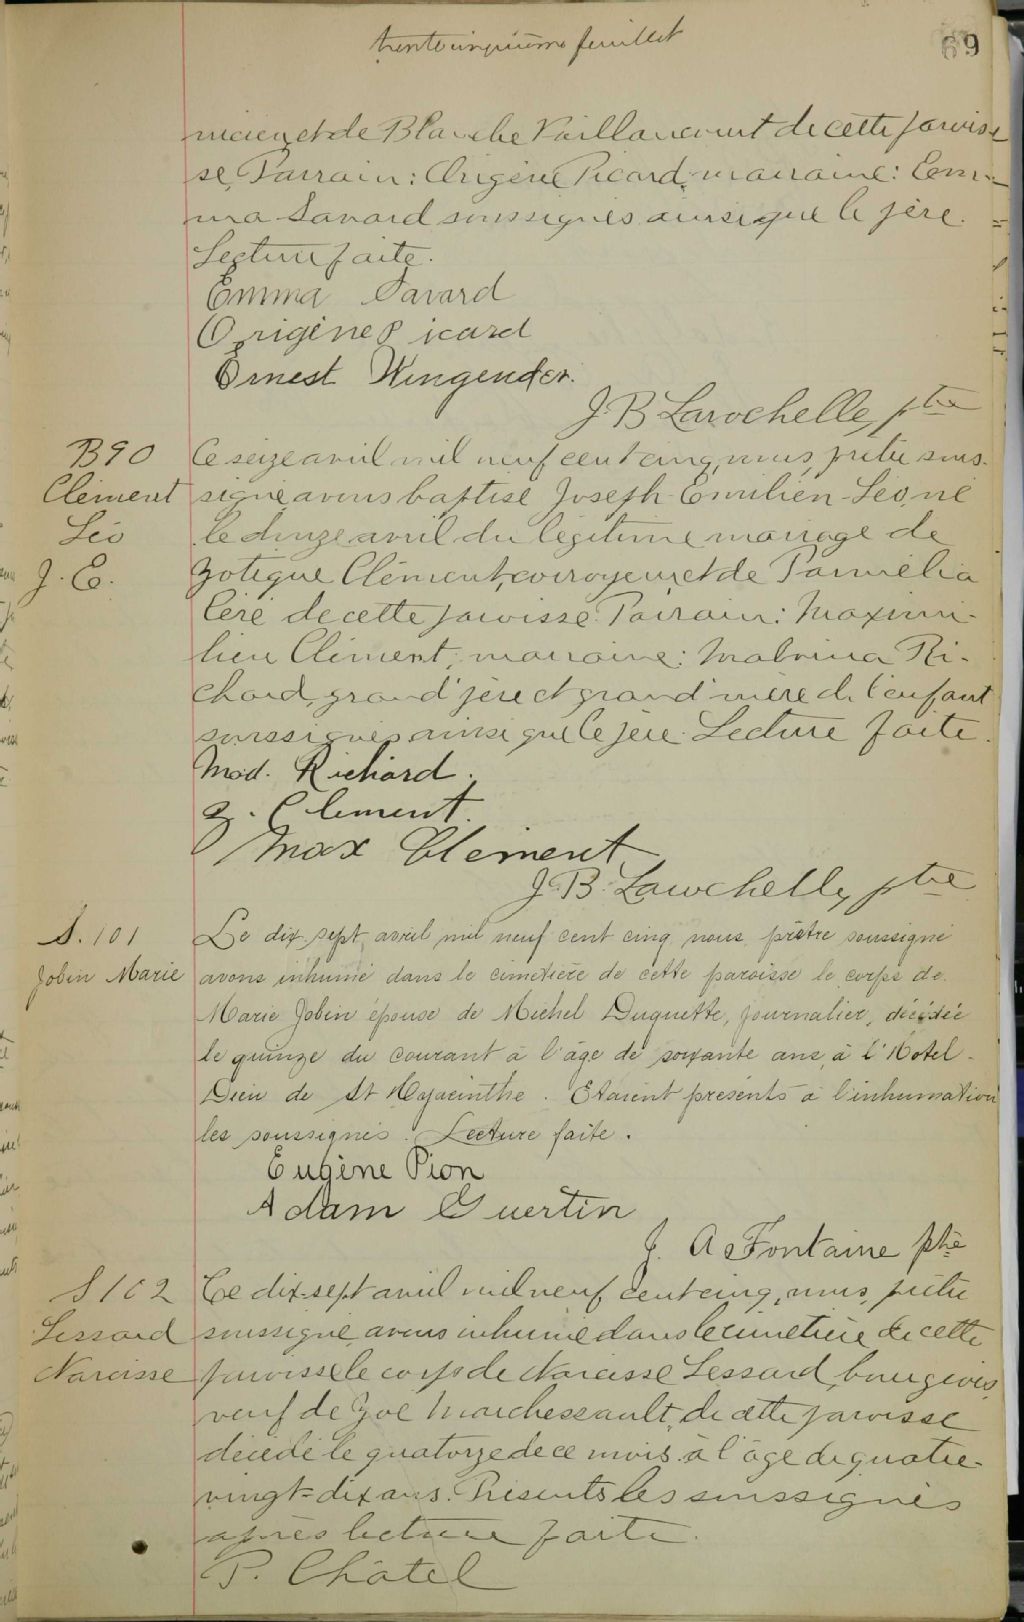 trentecinquième feuillet
69
nicien et de Blanche Vaillancourt de cette parois-
se, Parrain: Origène Picard, marraine: Em-
ma Savard soussignés ainsi que le père.
Lecture faite.
Emma Savard
Origène Picard
Ernest Wingender.
J B Larochelle, ptre
B90
Clément
Léo
J. E.
Ce seize avril mil neuf cent cinq, nous, prêtre sous-
signé, avons baptisé Joseph-Emilien-Léo, né
le avril du légitime mariage de
Zotique Clément, corroyeur, et de Parmélia
Céré de cette paroisse. Parrain: Maximi-
lien Clément, marraine: Malvina Ri-
chard, grand'père et grand'mère de l'enfant
soussignés ainsi que le père. Lecture faite.
Mad. Richard.
Z. Clement.
Max Clement
J. B. Larochelle, ptre
S. 101
Jobin Marie
Le dix-sept avril mil neuf cent cinq nous prêtre soussigné
avons inhumé dans le cimetière de cette paroisse le corps de
Marie Jobin épouse de Michel Duquette, journalier, décédée
le quinze du courant à l'âge de soixante ans, à l'Hotel-
Dieu de St Hyacinthe. Etaient présents à l'inhumation
les soussignés. Lecture faite.
Eugène Pion
Adam Guertin
J. A. Fontaine ptre
S 102
Lessard
Narcisse
Ce dix-sept avril mil neuf cent cinq, nous, prêtre
soussigné, avons inhumé dans le cimetière de cette
paroisse le corps de Narcisse Lessard, bourgeois,
veuf de Zoé Marchessault, de cette paroisse
décédé le quatorze de ce mois à l'âge de quatre-
vingt-dix ans. Présents les soussignés
après lecture faite.
P. Châtel